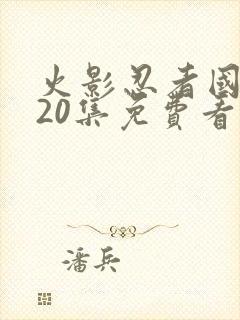 火影忍者國
20集免費看
潘兵